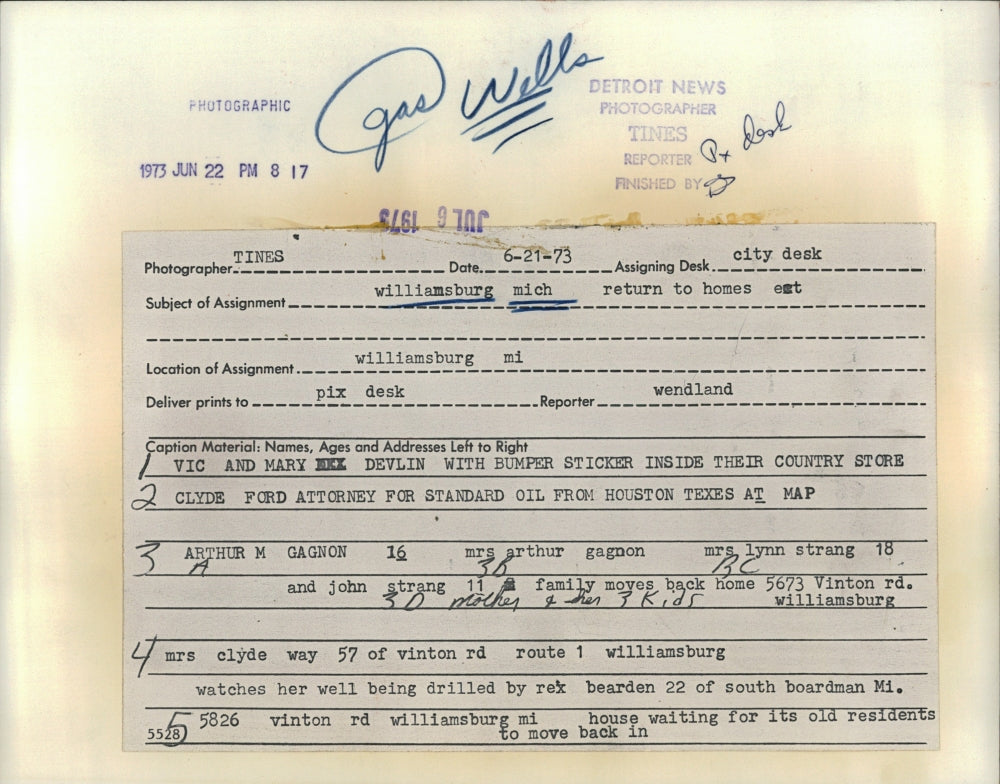 gas Wells
PHOTOGRAPHIC
1973 JUN 22 PM 8 17
DETROIT NEWS
PHOTOGRAPHER
TINES
REPORTER Px desk
FINISHED BY
JUL 6 1973
Photographer TINES Date 6-21-73 Assigning Desk city desk
Subject of Assignment williamsburg mich return to homes
Location of Assignment williamsburg mi
Deliver prints to pix desk Reporter wendland
Caption Material: Names, Ages and Addresses Left to Right
1 VIC AND MARY DEVLIN WITH BUMPER STICKER INSIDE THEIR COUNTRY STORE
2 CLYDE FORD ATTORNEY FOR STANDARD OIL FROM HOUSTON TEXES AT MAP
3 ARTHUR M GAGNON 16 mrs arthur gagnon mrs lynn strang 18
A 3B
and john strang 11 family moves back home 5673 Vinton rd.
3D mother & her 3 Kids williamsburg
4 mrs clyde way 57 of vinton rd route 1 williamsburg
watches her well being drilled by rex bearden 22 of south boardman Mi.
5 5826 vinton rd williamsburg mi house waiting for its old residents
5528 to move back in